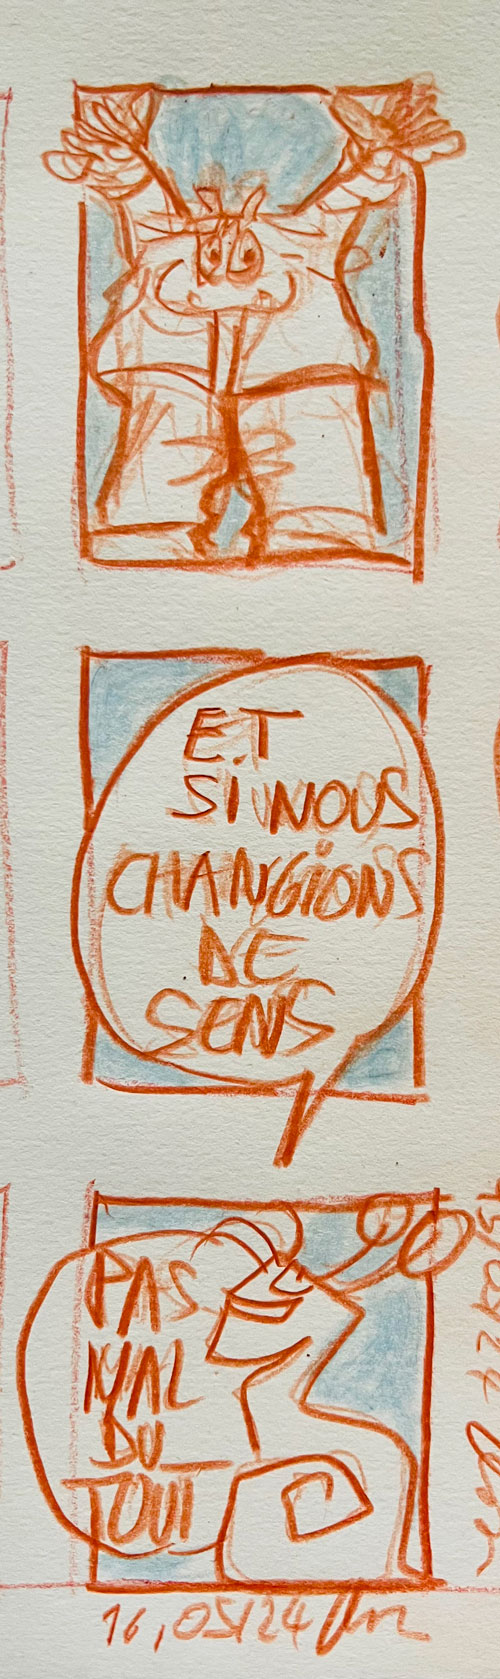 ET
SI NOUS
CHANGIONS
DE
SENS
PAS
MAL
DU
TOUT
16,05/24